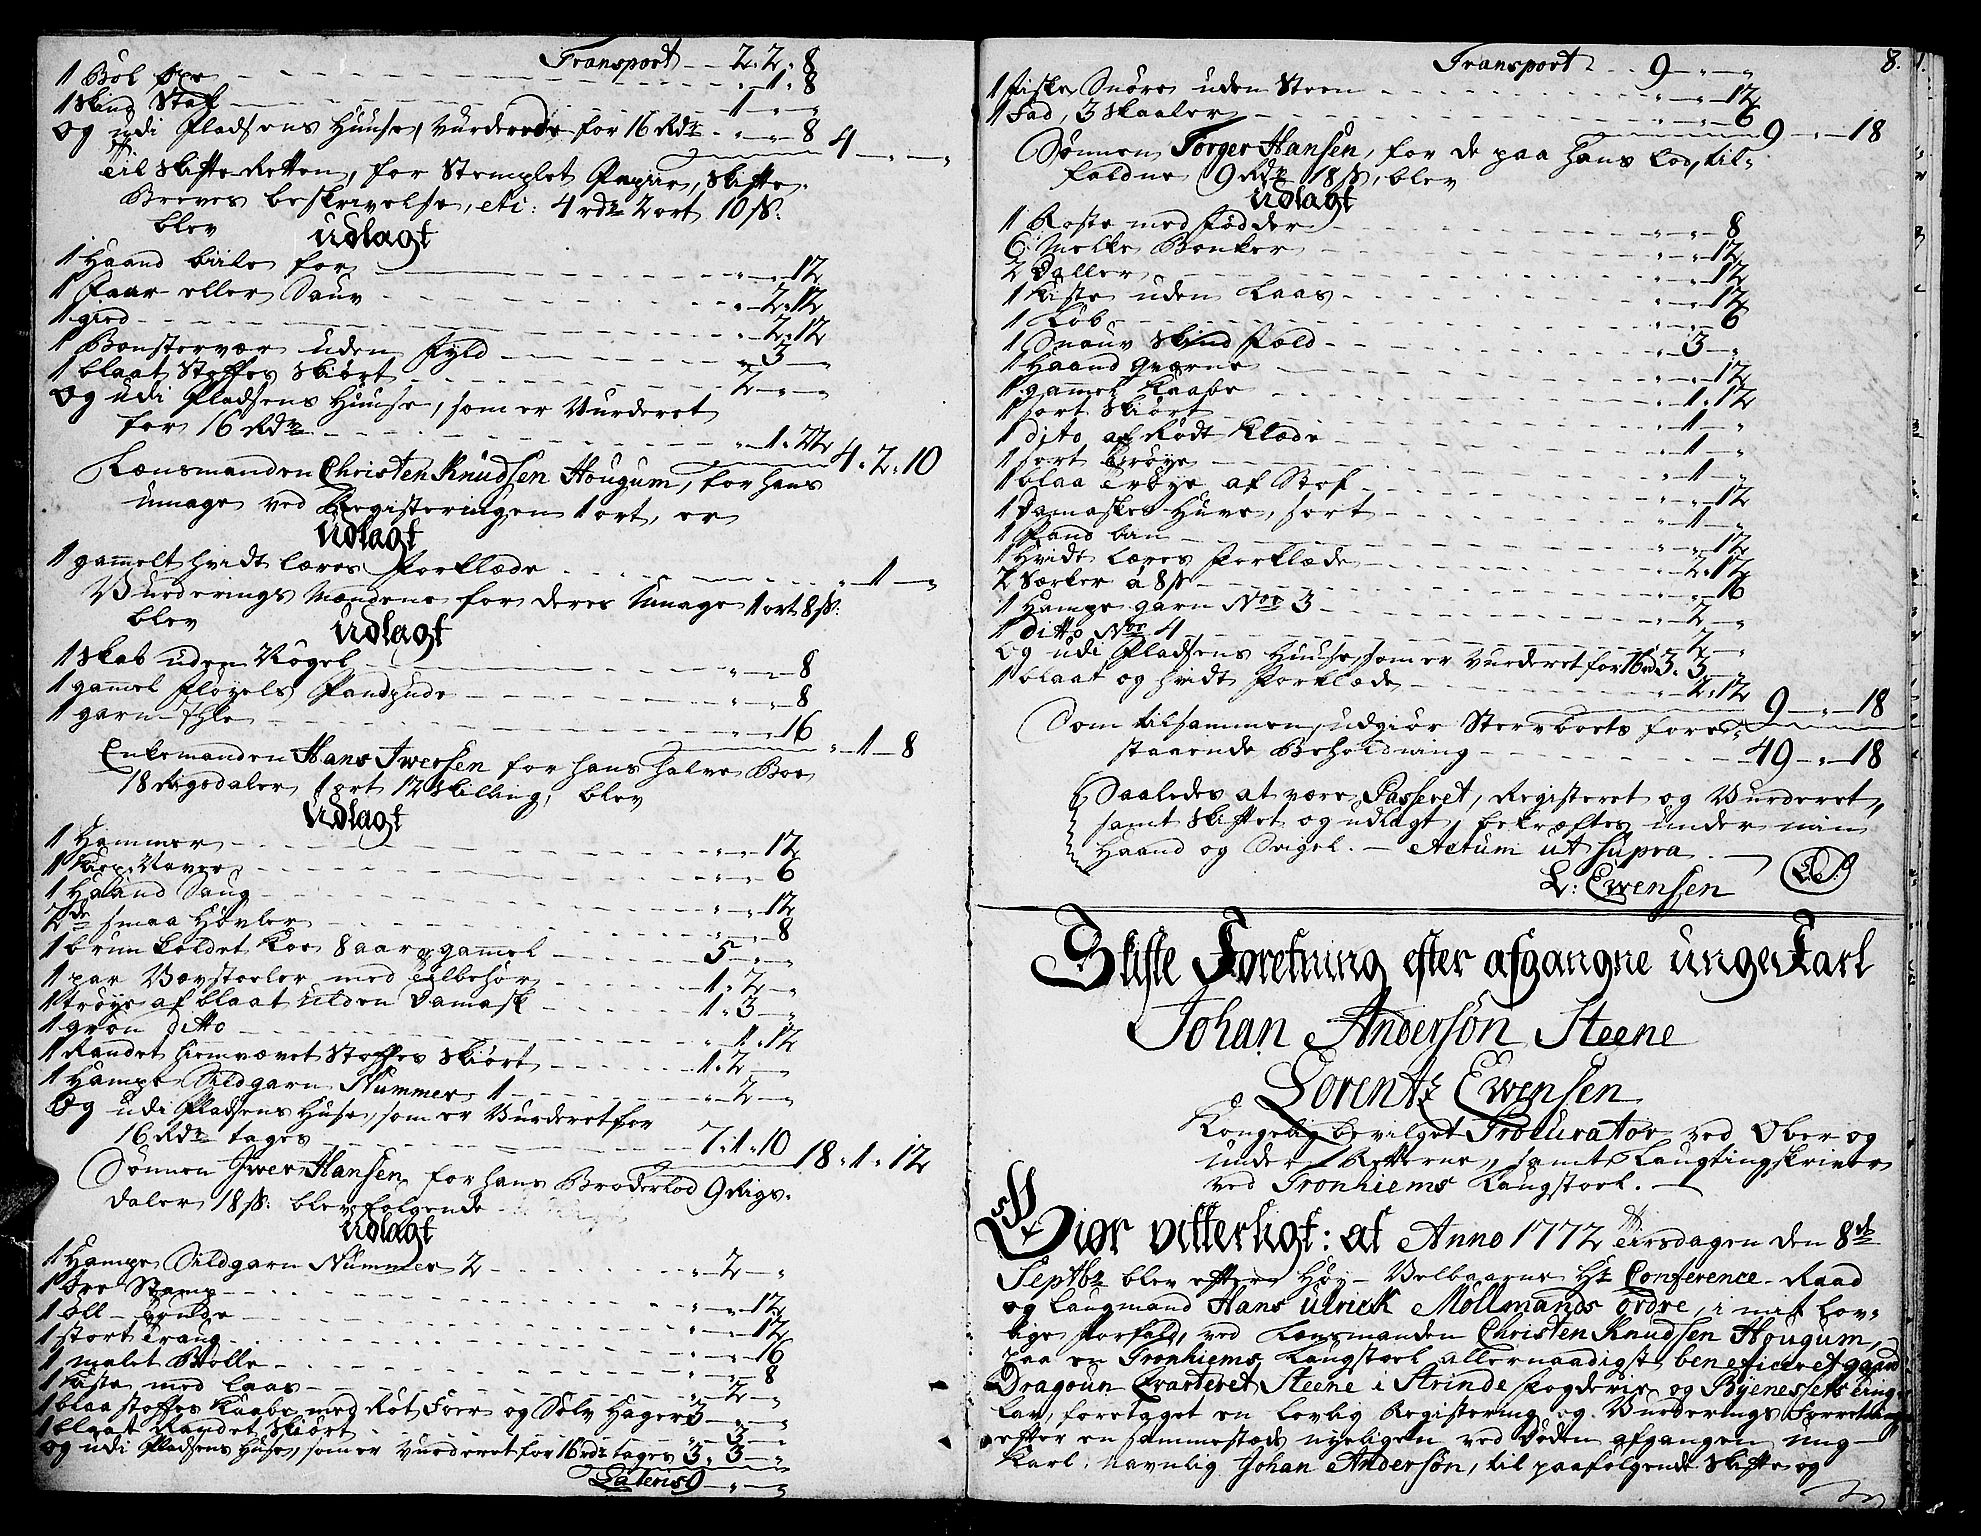 Transport - - 2 " 2 " 8
1 Bol Øxe - - - " 1 " 8
1 Skind Stak - - - 1 - "
og udi Pladsens Huuse, Vurderede for 16 Rdr - " - " 8 4 - " - "
Til Skifte Retten, for Stemplet Papiir, Skifte
Brevets beskrivelse, etc: 4 rdr 2 ort 10 ß:
blev
Udlagt
1 Haand biile for - - - " - " 12
1 Faar eller Sauv - - - " 2 " 12
1 gied - - - " 2 " 12
1 Bonstervær uden Fyld - - - " 3 - "
1 blaat Stoffes Skiørt - - - 2 - " - "
og udi Pladsens Huuse, som er Vurderet
for 16 Rdr - - - " 1 " 22 4 " 2 " 10
Lænsmanden Christen Knudsen Hougum, for hans
umage ved Registeringen 1 ort, er
Udlagt
1 gammelt hvidt læres Forklæde - - - " 1 - "
Vurderings Mændene for deres Umage 1 ort 8 ß:
blev
Udlagt
1 Skab uden Nøgel - - - " - " 8
1 gammel Fløyels Pandpude - - - " - " 8
1 garn - - - " - " 16 " 1 - 8
Enkemanden Hans Iwersen for hans halve Boe
18 Rigsdaler 1 ort 12 Skilling, blev
Udlagt
1 Hammer - - - " - " 12
1 Naver - - - " - " 6
1 Haand Saug - - - " - " 12
2de smaa Høvler - - - " - " 8
1 brun koldet Koe 8 aar gammel - - - 5 - " - "
1 par Vævstoeler med Tilbehør - - - 1 " 2 - "
1 trøye af blaat ulden Damask - - - 1 " 3 - "
1 grøn ditto - - - " 1 " 12
1 Randet hiemvævet Stoffes Skiørt - - - 1 " 2 - "
1 Hampe Sildgarn Nummer 1 - - - " 2 - "
Og udi Pladsens Huse, som er Vurderet for
16 Rdr tages - - - 7 " 1 " 10 18 " 1 " 12
Sønnen Iwer Hansen for hans Broderlod 9 Rigs-
daler 18 ß: blev følgende
Udlagt
1 Hampe Sildgarn Nummer 2 - - - " 2 - "
1 Stamp - - - " - " 12
1 - - - " - " 12
1 stort Traug - - - " - " 16
1 malet Bolle - - - " - " 8
1 Kiste med laas - - - " 2 - "
1 blaa stoffes Kaabe med Røt Foer og Sølv Hager 3 - " - "
1 blaat Randet Skiørt - - - " 3 - "
og udi Pladsens Huse, som er Vurderet for 16 rdr tages 3 " 3 - "
Latens 9 - " - "
Transport - - 9 - " - " 8.
1 fiske Snøre uden Steen - - - " - " 12
1 Fad, 3 Skaaler - - - " - " 6 9 - " - 18
Sønnen Torger Hansen, for de paa hans Lod, til-
faldne 9 Rdr 18 ß, blev
Udlagt
1 Roste med Fødder - - - " - " 8
6 Melke Bonker - - - " - " 12
2 Daller - - - " - " 12
1 Kiste uden Laas - - - " - " 12
1 Løb - - - " - " 6
1 Snauv Skind Fæld - - - " 3 - "
1 Haand Qværne - - - " - " 12
1 gammel Kaabe - - - " 1 " 12
1 sort Skiørt - - - " 1 - "
1 dito af Rødt Klæde - - - " 1 - "
1 sort Trøye - - - " 1 - "
1 blaa Trøye af Stof - - - " - " 12
1 Damaskes Huve, sort - - - " 1 - "
1 Pand - - - " - " 12
1 Hvidt læres Forklæde - - - " 2 " 12
2 Særker á 8 ß - - - " - " 16
1 Hampe garn Nor 3 - - - " 2 - "
1 ditto Nor 4 - - - " 2 - "
og udi Pladsens Huuse, som er Vurderet for 16 rd 3 " 3 - "
1 blaat og hvidt Forklæde - - - " 2 " 12 9 - " - 18
Som tilsammen, udgiør Sterv boets fore-
staaende Beholdning - - - 49 - " - 18
Saaledes at være Passeret, Registeret og Vurderet,
samt Skiftet og udlagt, bekræftes under min
Haand og Seigel. - Actum ut supra.
L: Ewensen (L.S.)
Skifte Forretning efter afgangne unge Karl
Johan Andersøn Steene
Lorentz Ewensen
Kongelig bevilget Procurator ved Ober og
under Retterne, samt Laugtingskriver
ved Tronhiems Laugstoel.
Giør vitterligt: at Anno 1772 Tirsdagen den 8de
Septbr blev efter Høy-Velbaarne Hr Conference-Raad
og Laugmand Hans Ulrick Møllmands ordre, i mit lov-
lige Forfald, ved Lænsmanden Christen Knudsen Hougum,
paa en Tronhiems Laugstoel allernaadigst beneficeret gaard
Dragoun Qvarteret Steene i Strinde Fogderie og Byenessets Ting
lav, foretaget en lovlig Registering og Vurderings Forretning
efter en sammestæds nyeligen ved Døden afgangen ung
Karl, navnlig Johan Andersøn, til paafølgende Skifte og